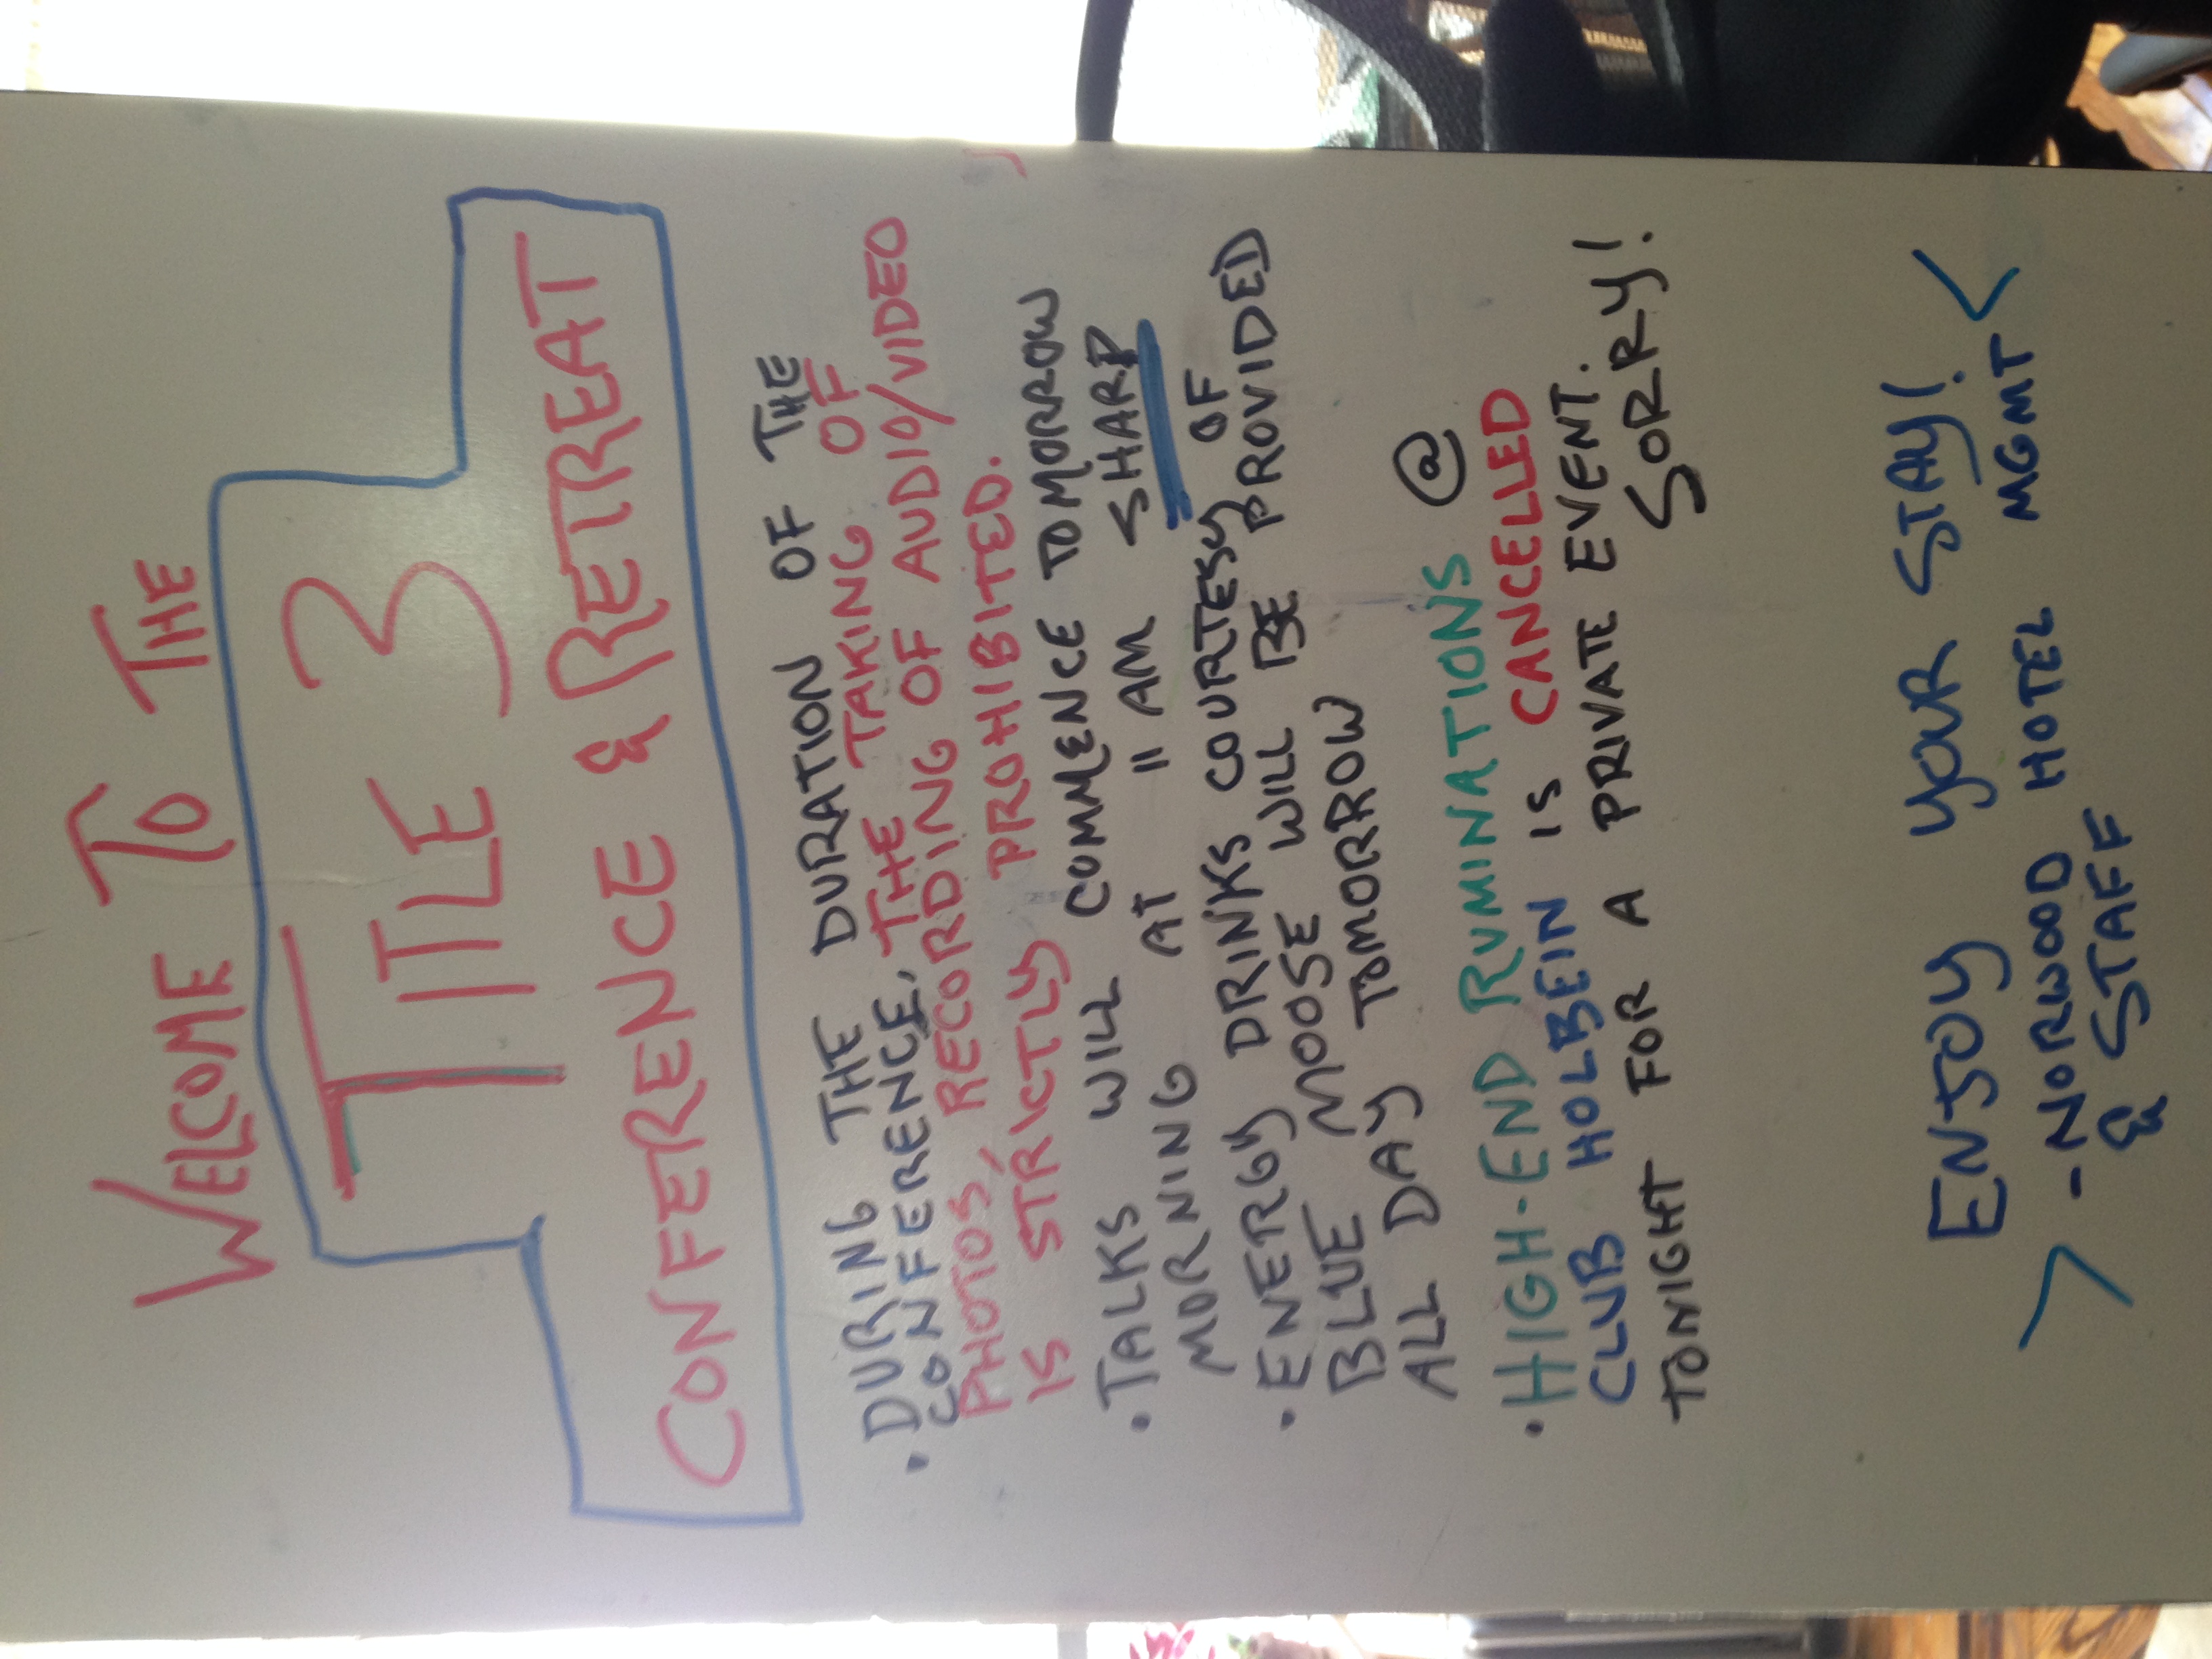 WELCOME TO THE
TITLE 3
CONFERENCE & RETREAT
• DURING THE DURATION OF THE
CONFERENCE, THE TAKING OF
PHOTOS, RECORDING OF AUDIO/VIDEO
IS STRICTLY PROHIBITED.
• TALKS WILL COMMENCE TOMORROW
MORNING AT 11 AM SHARP
• ENERGY DRINKS COURTESY OF
BLUE MOOSE WILL BE PROVIDED
ALL DAY TOMORROW
• HIGH-END RUMINATIONS @
CLUB HOLBEIN IS CANCELLED
TONIGHT FOR A PRIVATE EVENT.
SORRY!
ENJOY YOUR STAY!
> -NORWOOD HOTEL MGMT <
& STAFF